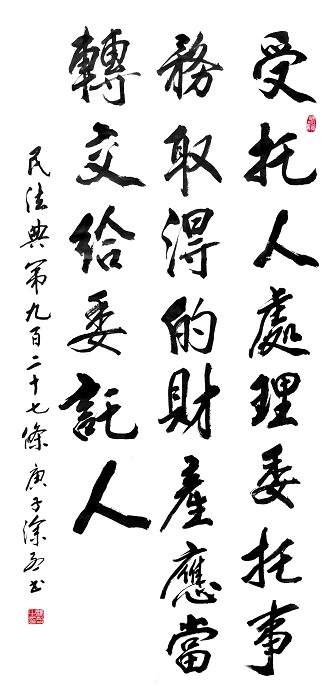 受托人處理委托事
務取得的財產應當
轉交給委託人
民法典第九百二十七條 庚子涂 書